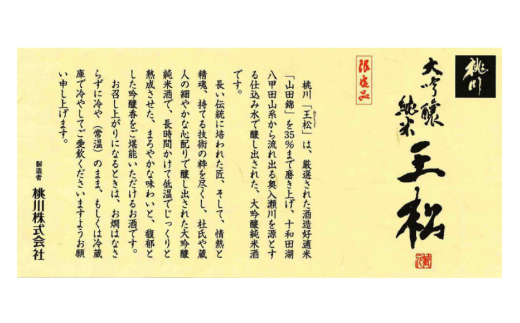 桃川
大吟醸
純米
王松
限定品
桃川「王松」は、厳選された酒造好適米
「山田錦」を35％まで磨き上げ、十和田湖
八甲田山系から流れ出る奥入瀬川を源とす
る仕込み水で醸し出された、大吟醸純米酒
です。
長い伝統に培われた匠、そして、情熱と
精魂、持てる技術の粋を尽くし、杜氏や蔵
人の細やかな心配りで醸し出された大吟醸
純米酒で、長時間かけて低温でじっくりと
熟成させた、まろやかな味わいと、馥郁と
した吟醸香をご堪能いただけるお酒です。
お召し上がりになるときは、お燗はなさ
らずに冷や（常温）のまま、もしくは冷蔵
庫で冷やしてご愛飲くださいますようお願
い申し上げます。
製造者 桃川株式会社